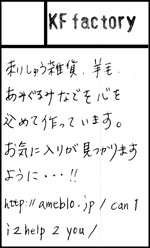 KF factory
刺しゅう雑貨、羊毛
あみぐるみなどを心を
込めて作っています。
お気に入りが見つかります
ように・・・!!
http://ameblo.jp/can1
i2help2you/